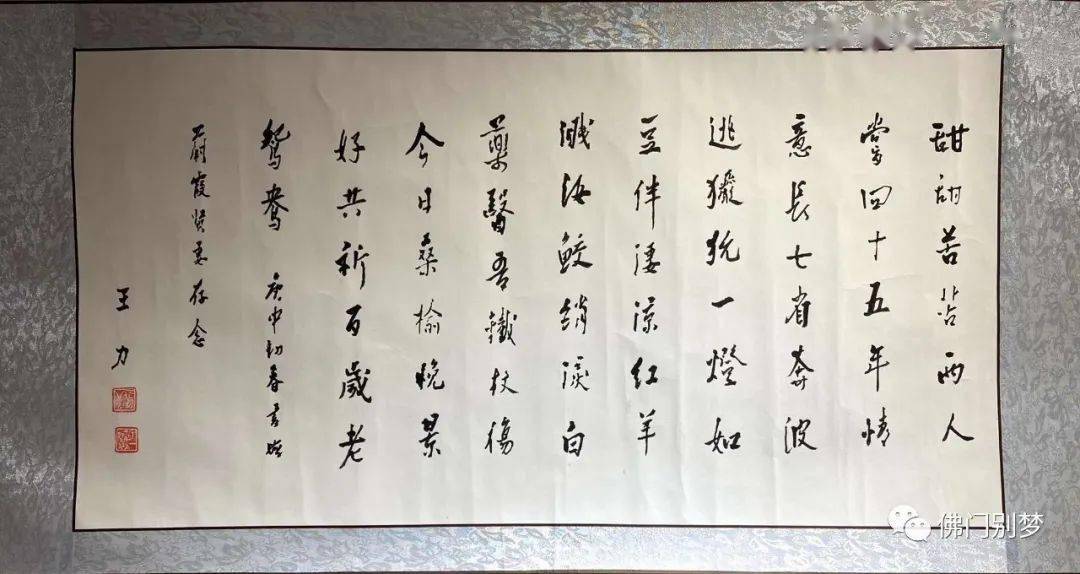 甜甜苦苦兩人
嘗四十五年情
意長七省奔波
逃玁狁一燈如
豆伴淒涼紅羊
濺汝鮫綃淚白
藥醫吾鐵杖傷
今日桑榆晚景
好共祈百歲老
鴛鴦 庚申初春書贈
蔚霞贤妻存念
王力
佛门别梦